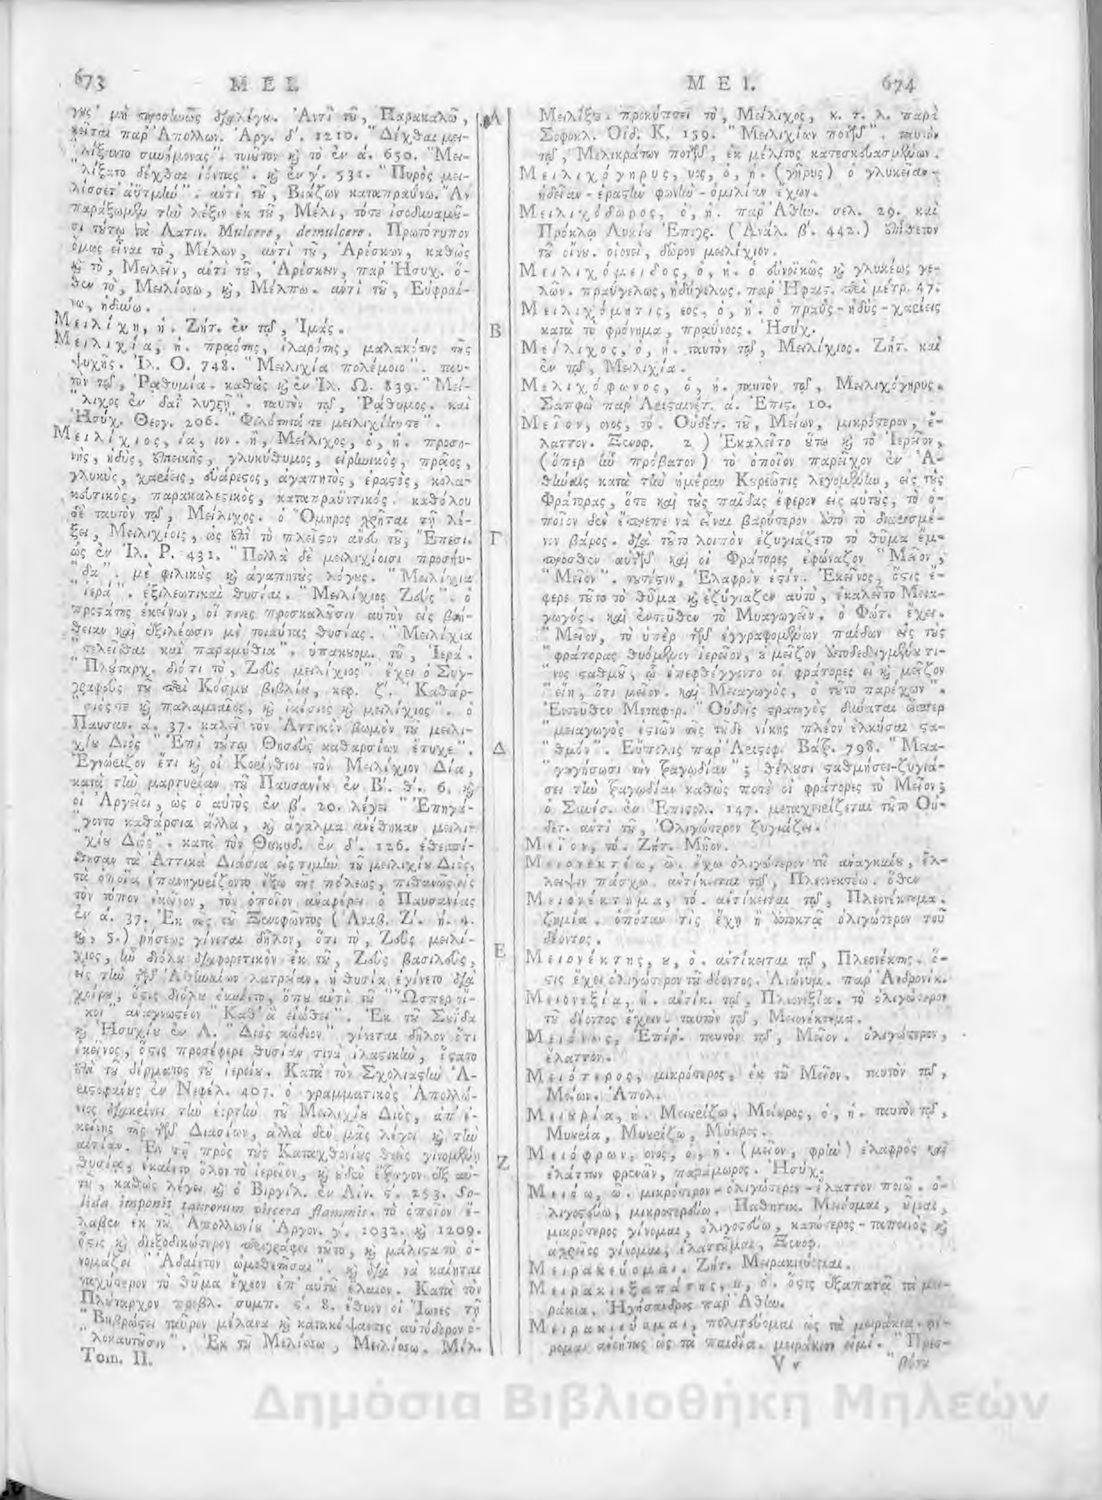 673 ΜΕΙ.
γῃς μὴ προσηνῶς διαλέγῃ. Ἀντὶ τοῦ, Παρακαλῶ,
κεῖται παρ' Ἀπολλων. Ἀργ. δ'. 1210. "Δέχθαι μει-
"λίξαντο συνήμονας". τοιοῦτον καὶ τὸ ἐν ά. 650. "Μει-
"λίξατο δέχθαι ἰόντας". καὶ ἐν γ'. 531. "Πυρὸς μει-
λίσσετ' ἀϋτμὴν". ἀντὶ τοῦ, Βιάζων καταπραΰνω. Ἂν
παράξωμεν τὴν λέξιν ἐκ τοῦ, Μέλι, τότε ἰσοδυναμοῦ-
σι τούτῳ τὰ Λατιν. Mulcere, demulcere. Πρωτότυπον
ὅμως εἶναι τὸ, Μέλων, ἀντὶ τοῦ, Ἀρέσκων, καθὼς
καὶ τὸ, Μειλεῖν, ἀντὶ τοῦ, Ἀρέσκειν, παρ' Ἡσυχ. ὅ-
θεν τὸ, Μειλίσσω, καὶ, Μέλπω. ἀντὶ τοῦ, Εὐφραί-
νω, ἡδύνω.
Μειλίχη, ἡ. Ζήτ. ἐν τῷ, Ἱμάς.
Μειλιχία, ἡ. πραότης, ἱλαρότης, μαλακότης τῆς
ψυχῆς. Ἰλ. Ο. 748. "Μειλιχία πολέμοιο". ταυ-
τὸν τῷ, Ῥαθυμία. καθὼς καὶ ἐν Ἰλ. Ω. 839. "Μεί-
"λιχος ἐν δαῒ λυγρῇ". ταυτὸν τῷ, Ῥάθυμος. καὶ
Ἡσύχ. Θεογ. 206. "Φιλότητά τε μειλιχίαν τε".
Μειλίχιος, ία, ιον. ἢ, Μείλιχος, ὁ, ἡ. προση-
νὴς, ἡδὺς, ἐπιεικὴς, γλυκύθυμος, εἰρωνικὸς, πρᾶος,
γλυκὺς, χαρίεις, εὐάρεστος, ἀγαπητὸς, ἐραστὸς, κολα-
κευτικὸς, παρακαλεστικὸς, καταπραϋντικός. καθόλου
δὲ ταυτὸν τῷ, Μείλιχος. ὁ Ὅμηρος χρῆται τῇ λέ-
ξει, Μειλιχίοις, ὡς ἐπὶ τὸ πλεῖστον ἄνευ τοῦ, Ἔπεσι.
ὡς ἐν Ἰλ. Ρ. 431. "Πολλὰ δὲ μειλιχίοισι προσηύ-
"δα". μὲ φιλικοὺς καὶ ἀγαπητοὺς λόγους. "Μειλίχια
"ἱερά". ἐξιλεωτικαὶ θυσίαι. "Μειλίχιος Ζεὺς". ὁ
προστάτης ἐκείνων, οἵ τινες προσκαλοῦσιν αὐτὸν εἰς βοή-
θειαν καὶ ἐξιλέωσιν μὲ τοιαύτας θυσίας. "Μειλίχια
"τελεῖσθαι καὶ παραμύθια". ὑπακουομ. τοῦ, Ἱερά.
"Πλούταρχ. διότι τὸ, Ζεὺς μειλίχιος" ἔχει ὁ Συγ-
γραφεὺς τοῦ περὶ Κόσμου βιβλίου, κεφ. ζ'. "Καθάρ-
"σιός τε καὶ παλαμναῖος, καὶ ἱκέσιος καὶ μειλίχιος". ὁ
Παυσαν. ά. 37. καλεῖ τὸν Ἀττικὸν βωμὸν τοῦ μειλι-
χίου Διὸς "Ἐπὶ τούτῳ Θησεὺς καθαρσίων ἔτυχε".
Ἐγνώριζον ἔτι καὶ οἱ Κορίνθιοι τὸν Μειλίχιον Δία,
κατὰ τὴν μαρτυρίαν τοῦ Παυσανίου ἐν Β'. θ'. 6. καὶ
οἱ Ἀργεῖοι, ὡς ὁ αὐτὸς ἐν β'. 20. λέγει "Ἐπηγά-
"γοντο καθάρσια ἄλλα, καὶ ἄγαλμα ἀνέθηκαν μειλι-
"χίου Διὸς". κατὰ τὸν Θουκυδ. ἐν δ'. 126.
τὰ Ἀττικὰ Διάσια εἰς τιμὴν τοῦ μειλιχίου Διὸς,
τὰ ὁποῖα ἐπανηγυρίζοντο ἔξω τῆς πόλεως, πιθανῶς εἰς
τὸν τόπον ἐκεῖνον, τὸν ὁποῖον ἀναφέρει ὁ Παυσανίας
ἐν ά. 37. Ἐκ τῆς τοῦ Ξενοφῶντος (Ἀναβ. Ζ'. ή. 4.
καὶ, 5.) ῥήσεως γίνεται δῆλον, ὅτι τὸ, Ζεὺς μειλί-
χιος, ἦν διόλου διαφορετικὸν ἐκ τοῦ, Ζεὺς βασιλεὺς,
εἰς τὴν τῶν Ἀθηναίων λατρείαν. ἡ θυσία ἐγίνετο διὰ
χοίρου, ὅστις διόλου ἐκαίετο, ὅπου ἀντὶ τοῦ "Ὥσπερ οἱ-
"κοι" ἀναγνωστέον "Καθ' ἃ εἰώθει". Ἐκ τοῦ Σουΐδα
καὶ Ἡσυχίου ἐν Λ. "Διὸς κώδιον" γίνεται δῆλον ὅτι
ἐκεῖνος, ὅστις προσέφερε θυσίαν τινὰ ἱλαστικὴν, ἵστατο
ἐπὶ τοῦ δέρματος τοῦ ἱερείου. Κατὰ τὸν Σχολιαστὴν Ἀ-
ριστοφάνης ἐν Νεφέλ. 407. ὁ γραμματικὸς Ἀπολλώ-
νιος διακρίνει τὴν ἑορτὴν τοῦ Μειλιχίου Διὸς, ἀπ' ἐ-
κείνης τῆς τῶν Διασίων, ἀλλὰ δὲν μᾶς λέγει καὶ τὴν
αἰτίαν. Ἐν τῇ πρὸς τοὺς Καταχθονίους θεοὺς γινομένῃ
θυσίᾳ, ἐκαίετο ὅλον τὸ ἱερεῖον, καὶ οὐδὲν ἔτρωγον ἐξ αὐ-
τοῦ, καθὼς λέγει καὶ ὁ Βιργίλ. ἐν Αἰν. ς'. 253. So-
lida imponit taurorum viscera flammis. τὸ ὁποῖον ἔ-
λαβεν ἐκ τοῦ Ἀπολλωνίου Ἀργον. γ'. 1032. καὶ 1209.
ὅστις καὶ διεξοδικώτερον περιγράφει τοῦτο, καὶ μάλιστα τὸ ὀ-
νομάζει "Ἀδαίετον ὠμοθετῆσαι". καὶ διὰ νὰ καίηται
ταχύτερον τὸ θῦμα ἔχεον ἐπ' αὐτὸ ἔλαιον. Κατὰ τὸν
Πλούταρχον προβλ. συμπ. ς'. 8. ἔθυον οἱ Ἴωνες τῇ
"Βουβρώσει ταῦρον μέλανα καὶ κατακόψαντες αὐτόδερον ὁ-
"λοκαυτοῦσιν". Ἐκ τοῦ Μειλίσσω, Μειλίσσω. Μέλ.
Tom. II.
Α
Β
Γ
Δ
Ε
Ζ
ΜΕΙ. 674
Μειλίξω. προκύπτει τὸ, Μείλιχος, κ. τ. λ. παρὰ
Σοφοκλ. Οἰδ. Κ. 159. "Μειλιχίων ποτῶν". ταυτὸν
τῷ, Μελικράτων ποτῶν, ἐκ μέλιτος κατεσκευασμένων.
Μειλιχόγηρυς, υος, ὁ, ἡ. (γῆρυς) ὁ γλυκεῖαν-
ἡδεῖαν-ἐραστὴν φωνὴν-ὁμιλίαν ἔχων.
Μειλιχόδωρος, ὁ, ἡ. παρ' Ἀθήν. σελ. 29. καὶ
Πρόκλῳ Λυκίῳ Ἐπιγρ. (Ἀνάλ. β'. 442.) ἐπίθετον
τοῦ οἴνου. οἱονεὶ, δῶρον μειλίχιον.
Μειλιχόμειδος, ὁ, ἡ. ὁ εὐνοϊκῶς καὶ γλυκέως γε-
λῶν. πραΰγελως, ἡδύγελως. παρ' Ἡφαιστ. περὶ μέτρ. 47.
Μειλιχόμητις, εος, ὁ, ἡ. ὁ πραῢς-ἡδὺς-χαρίεις
κατὰ τὸ φρόνημα, πραΰνοος. Ἡσύχ.
Μείλιχος, ὁ, ἡ. ταυτὸν τῷ, Μειλίχιος. Ζήτ. καὶ
ἐν τῷ, Μειλιχία.
Μειλιχόφωνος, ὁ, ἡ. ταυτὸν τῷ, Μειλιχόγηρυς.
Σαπφὼ παρ' Ἀρισταινέτ. ά. Ἐπις. 10.
Μεῖον, ονος, τό. Οὐδέτ. τοῦ, Μείων, μικρότερον, ἔ-
λαττον. Ξενοφ. 2) Ἐκαλεῖτο οὕτω καὶ τὸ Ἱερεῖον,
(ὅπερ ἦν πρόβατον) τὸ ὁποῖον παρεῖχον ἐν Ἀ-
θήναις κατὰ τὴν ἡμέραν Κυρεώτις λεγομένην, εἰς τοὺς
Φράτορας, ὅτε καὶ τοὺς παῖδας ἔφερον εἰς αὐτοὺς, τὸ ὁ-
ποῖον δὲν ἔπρεπε νὰ εἶναι βαρύτερον ὑπὸ τὸ διωρισμέ-
νον βάρος. διὰ τοῦτο λοιπὸν ἐζυγιάζετο τὸ θῦμα ἔμ-
προσθεν αὐτῶν καὶ οἱ Φράτορες ἐφώναζον "Μεῖον,
"Μεῖον". τουτέστιν, Ἐλαφρόν ἐστιν. Ἐκεῖνος, ὅστις ἔ-
φερε τοῦτο τὸ θῦμα καὶ ἐζύγιαζεν αὐτὸ, ἐκαλεῖτο Μεια-
γωγός. καὶ ἐντεῦθεν τὸ Μειαγωγεῖν. ὁ Φώτ. ἔχει.
"Μεῖον, τὸ ὑπὲρ τῶν ἐγγραφομένων παίδων εἰς τοὺς
"φράτορας θυόμενον ἱερεῖον, οὐ μεῖζον ἀποδεδειγμένου τι-
"νος σταθμοῦ, ᾧ ἐπεφθέγγοντο οἱ φράτορες εἰ καὶ μεῖζον
"εἴη, ὅτι μεῖον. καὶ Μειαγωγὸς, ὁ τοῦτο παρέχων".
Ἐντεῦθεν Μεταφορ. "Οὐδεὶς στρατηγὸς δύναται ὥσπερ
"μειαγωγὸς ἑστιῶν τῆς τοῦδε νίκης πλέον ἑλκύσαι στα-
"θμόν". Εὔπολις παρ' Ἀριστοφ. Βάτρ. 798. "Μεια-
"γωγήσουσι τὴν τραγωδίαν"; θέλουσι σταθμήσει-ζυγιά-
σει τὴν τραγωδίαν καθὼς ποτὲ οἱ φράτορες τὸ Μεῖον;
ὁ Συνέσ. ἐν Ἐπιστολ. 147. μεταχειρίζεται τοῦτο Οὐ-
δέτ. ἀντὶ τοῦ, Ὀλιγώτερον ζυγιάζει.
Μεῖον, τό. Ζήτ. Μῆον.
Μειονεκτέω, ῶ. ἔχω ὀλιγώτερον τοῦ ἀναγκαίου, ἔλ-
λειψιν πάσχω. ἀντίκειται τῷ, Πλεονεκτέω. ὅθεν
Μειονέκτημα, τό. ἀντίκειται τῷ, Πλεονέκτημα.
ζημία. ὁπόταν τὶς ἔχῃ ἢ ἀποκτᾷ ὀλιγώτερον τοῦ
δέοντος.
Μειονέκτης, ου, ὁ. ἀντίκειται τῷ, Πλεονέκτης. ὅ-
στις ἔχει ὀλιγώτερον τοῦ δέοντος. Ἀνώνυμ. παρ' Ἀνδρονίκ.
Μειονεξία, ἡ. ἀντίκ. τῷ, Πλεονεξία. τὸ ὀλιγώτερον
τοῦ δέοντος ἔχειν. ταυτὸν τῷ, Μειονέκτημα.
Μειόνως, Ἐπίρ. ταυτὸν τῷ, Μεῖον. ὀλιγώτερον,
ἔλαττον.
Μειότερος, μικρότερος, ἐκ τοῦ Μεῖον. ταυτὸν τῷ,
Μείων. Ἀπολ.
Μειουρία, ἡ. Μειουρίζω, Μείουρος, ὁ, ἡ. ταυτὸν τῷ,
Μυουρία, Μυουρίζω, Μύουρος.
Μειόφρων, ονος, ὁ, ἡ. (μεῖον, φρὴν) ἐλαφρὸς καὶ
ἐλάττων φρενῶν, παράμωρος. Ἡσύχ.
Μειόω, ῶ. μικρότερον-ὀλιγώτερον-ἔλαττον ποιῶ. ὀ-
λιγοστεύω, μικροτερεύω. Παθητικ. Μειόομαι, οῦμαι,
μικρότερος γίνομαι, ὀλιγοστεύω, κατώτερος-ταπεινὸς καὶ
ἀχρεῖος γίνομαι, ἐλαττοῦμαι, Ξενοφ.
Μειρακεύομαι. Ζήτ. Μειρακιεύομαι.
Μειρακιεξαπάτης, ου, ὁ. ὅστις ἐξαπατᾷ τὰ μει-
ράκια. Ἡγήσανδρος παρ' Ἀθήν.
Μειρακιεύομαι, πολιτεύομαι ὡς τὰ μειράκια. φέ-
ρομαι ἀνοήτως ὡς τὰ παιδία. μειράκιόν εἰμι. "Πρεσ-
V v "βύτου
Δημόσια Βιβλιοθήκη Μηλεών